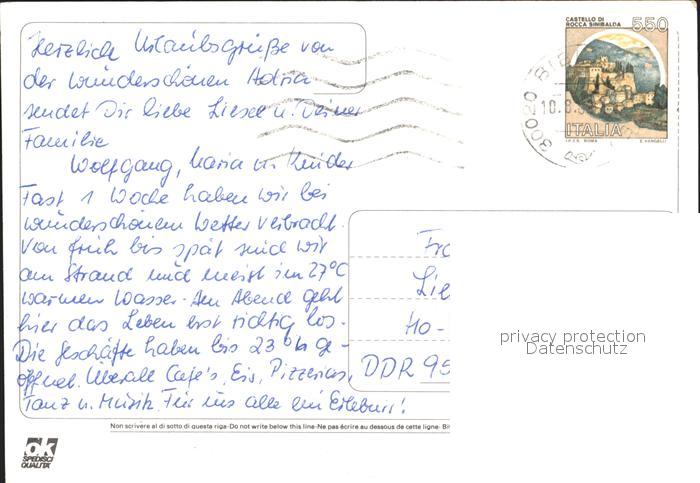 Herzliche Urlaubsgrüße von
der wunderschönen Adria
sendet Dir liebe Liesel u. Deiner
Familie
Wolfgang, Maria u. Kinder
Fast 1 Woche haben wir bei
wunderschönem Wetter verbracht.
Von früh bis spät sind wir
am Strand und meist im 27°C
warmen Wasser. Am Abend geht
hier das Leben erst richtig los.
Die Geschäfte haben bis 23 Uhr ge-
öffnet. Überall Cafe's, Eis, Pizzerias,
Tanz u. Musik. Für uns alle ein Erlebnis!
CASTELLO DI
ROCCA SINIBALDA
550
ITALIA
I.P.Z.S. ROMA E. VANGELLI
30020
10.8.
Fra
Lie
Ho-
DDR 95
privacy protection
Datenschutz
Non scrivere al di sotto di questa riga-Do not write below this line-Ne pas écrire au dessous de cette ligne- Bi
ok
SPEDISCI
QUALITA'